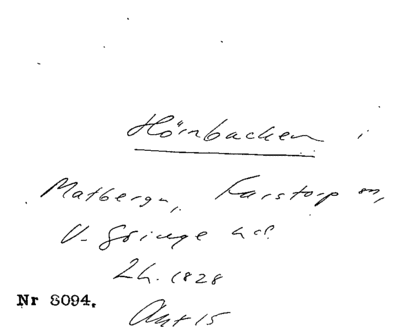 Hörnbacken i
Matbergen, Farstorp sn,
V. Göinge hd.
Lh. 1828
Nr 8094.
Akt 15